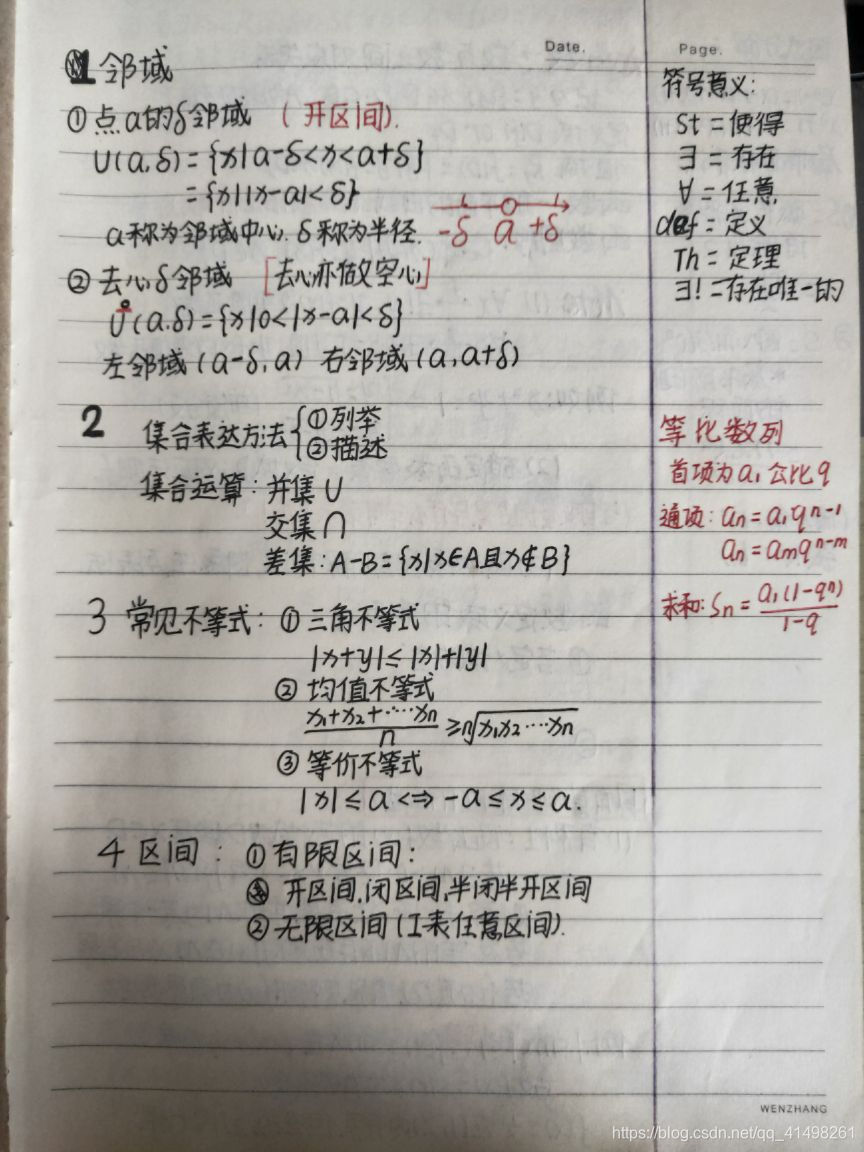 Date.
Page.
1 邻域
① 点a的δ邻域 (开区间).
U(a,δ) = {x|a-δ<x<a+δ}
= {x||x-a|<δ}
a称为邻域中心. δ称为半径.
-δ a +δ
② 去心δ邻域 [去心亦做空心]
Ů(a.δ) = {x|0<|x-a|<δ}
左邻域 (a-δ, a) 右邻域 (a, a+δ)
2 集合表达方法 { ① 列举
② 描述
集合运算: 并集 ∪
交集 ∩
差集: A-B = {x|x∈A且x∉B}
3 常见不等式: ① 三角不等式
|x+y| ≤ |x|+|y|
② 均值不等式
(x₁+x₂+……xₙ)/n ≥ ⁿ√(x₁x₂……xₙ)
③ 等价不等式
|x| ≤ a <=> -a ≤ x ≤ a.
4 区间: ① 有限区间:
开区间,闭区间,半闭半开区间
② 无限区间 (I表任意区间).
符号意义:
St = 使得
∃ = 存在
∀ = 任意
def = 定义
Th = 定理
∃! = 存在唯一的
等比数列
首项为a₁ 公比q
通项: aₙ = a₁qⁿ⁻¹
aₙ = aₘqⁿ⁻ᵐ
求和: Sₙ = a₁(1-qⁿ)/(1-q)
WENZHANG
https://blog.csdn.net/qq_41498261